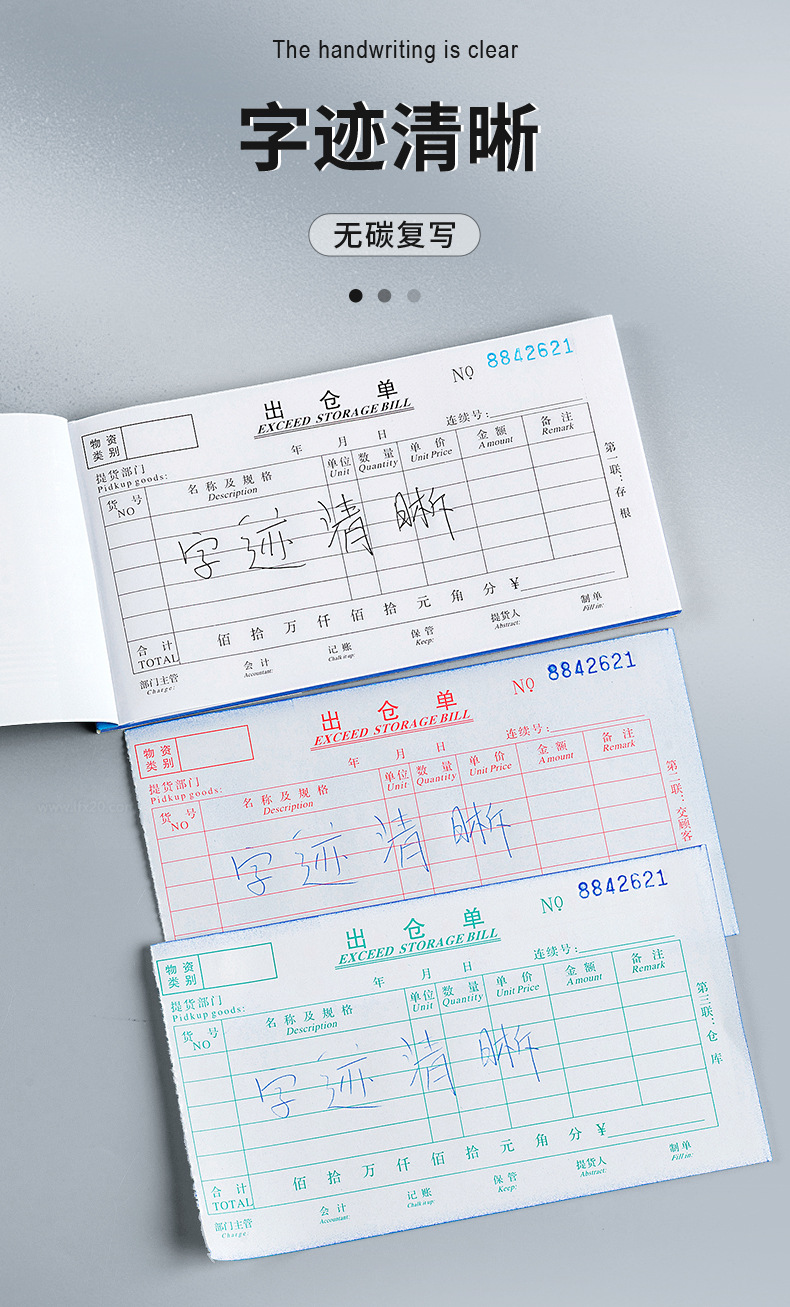 The handwriting is clear
字迹清晰
无碳复写
NO 8842621
出仓单
EXCEED STORAGE BILL
物资类别
年 月 日
连续号:
提货部门
Pidkup goods:
货号 名称及规格 单位 数量 单价 金额 备注
NO Description Unit Quantity Unit Price Amount Remark
字迹清晰
第一联:存根
合计 佰拾万仟佰拾元角分 ¥
TOTAL
部门主管 会计 记账 保管 提货人 制单
Charge: Accountant: Chalk it up: Keep: Abstract: Fill in:
NO 8842621
出仓单
EXCEED STORAGE BILL
物资类别
年 月 日
连续号:
提货部门
Pidkup goods:
货号 名称及规格 单位 数量 单价 金额 备注
NO Description Unit Quantity Unit Price Amount Remark
字迹清晰
第二联:交顾客
NO 8842621
出仓单
EXCEED STORAGE BILL
物资类别
年 月 日
连续号:
提货部门
Pidkup goods:
货号 名称及规格 单位 数量 单价 金额 备注
NO Description Unit Quantity Unit Price Amount Remark
字迹清晰
第三联:仓库
合计 佰拾万仟佰拾元角分 ¥
TOTAL
部门主管 会计 记账 保管 提货人 制单
Charge: Accountant: Chalk it up: Keep: Abstract: Fill in: